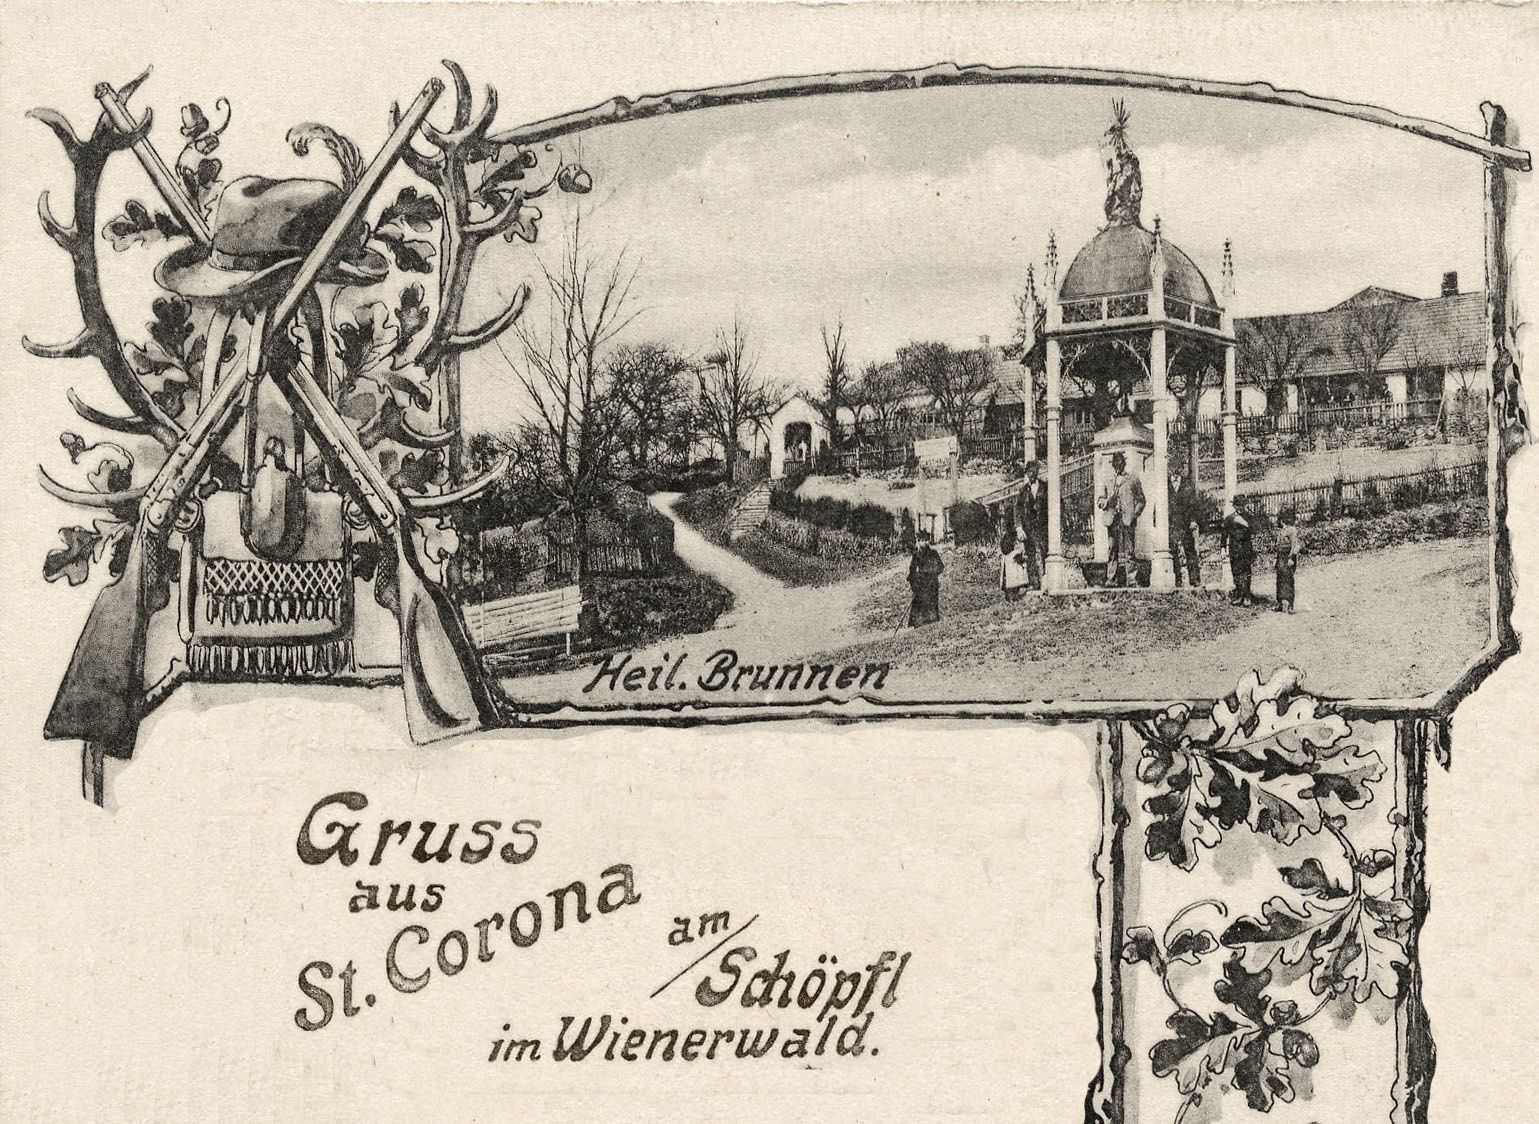 Heil. Brunnen
Gruss
aus
St. Corona
am
Schöpfl
im Wienerwald.